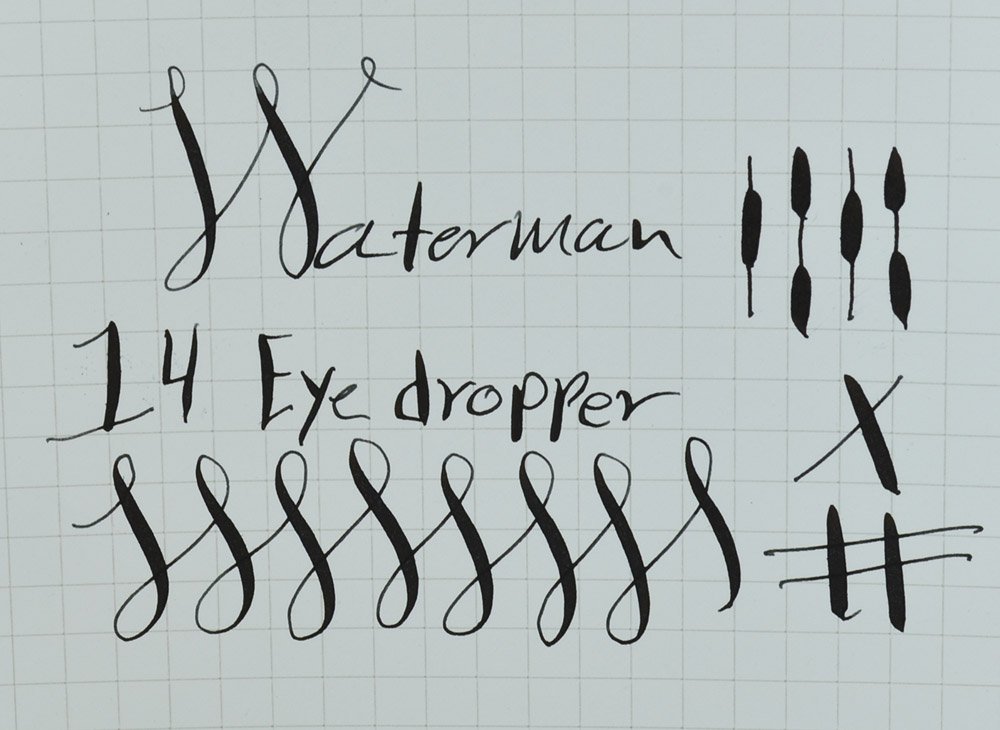 Waterman
14 Eyedropper
X
#